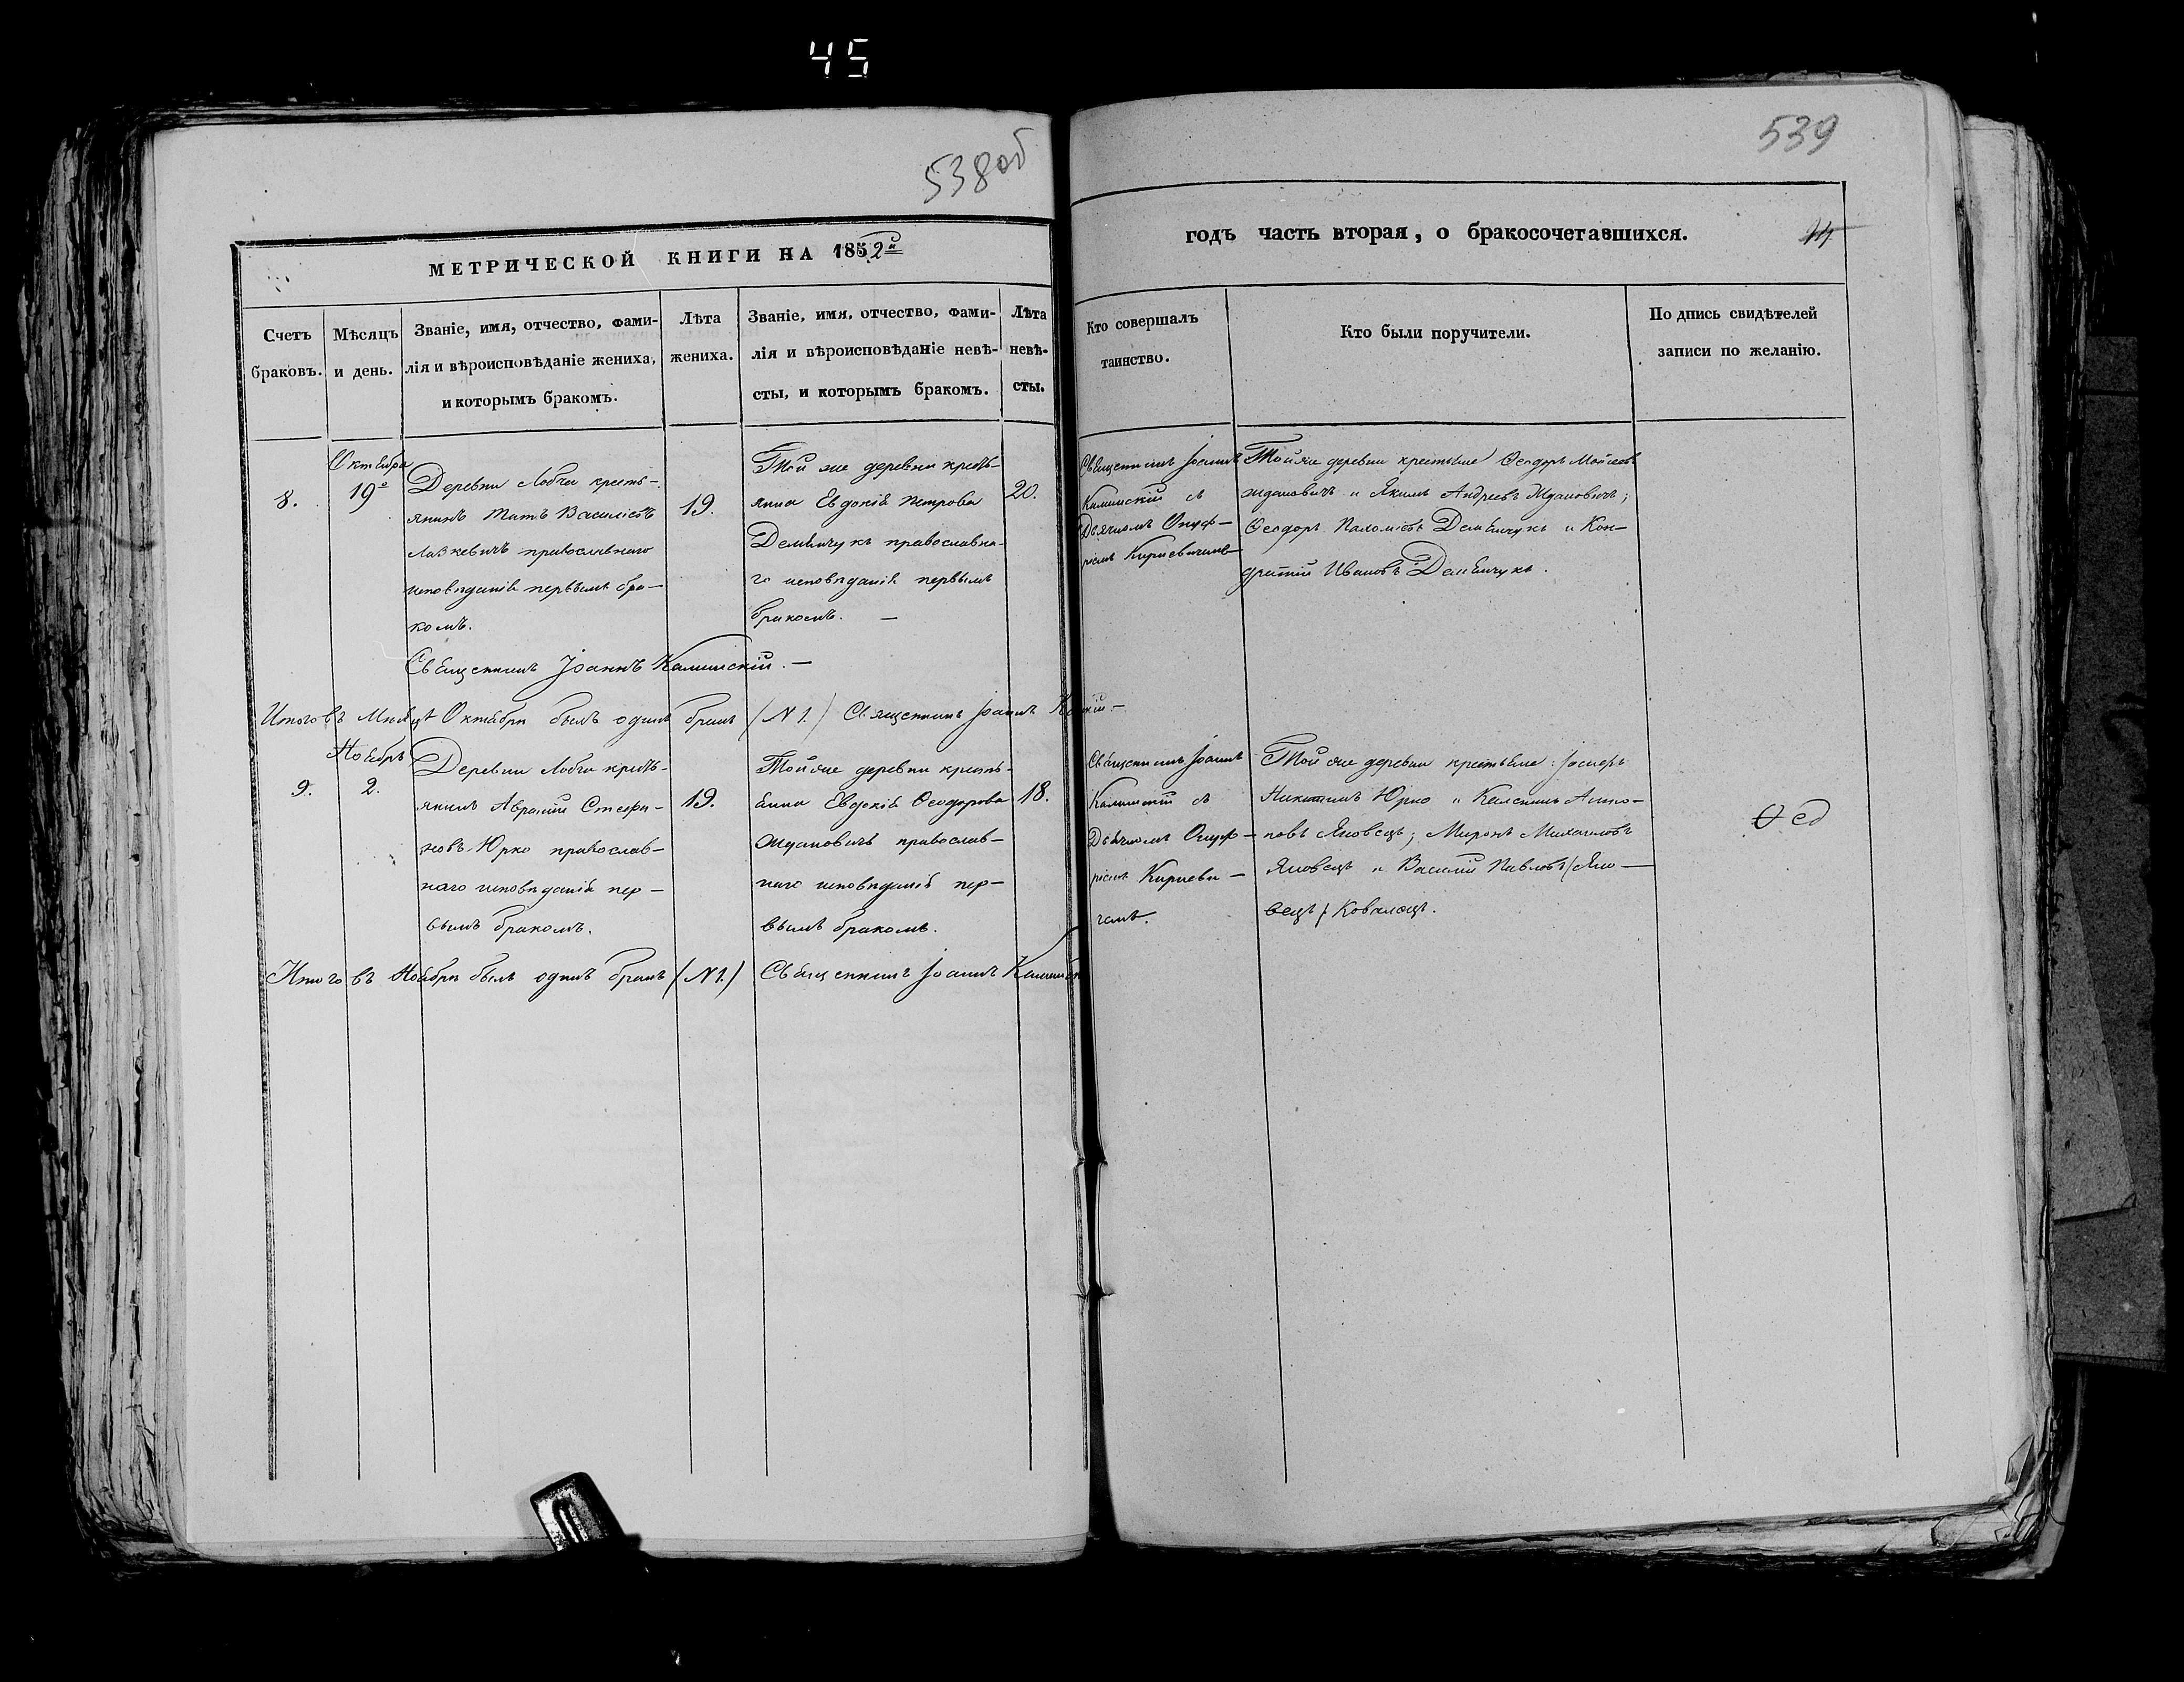 45
538об
539
МЕТРИЧЕСКОЙ КНИГИ НА 1852й
годъ часть вторая, о бракосочетавшихся.
44
Счетъ
браковъ.
Мѣсяцъ
и день.
Званіе, имя, отчество, фами-
лія и вѣроисповѣданіе жениха,
и которымъ бракомъ.
Лѣта
жениха.
Званіе, имя, отчество, фами-
лія и вѣроисповѣданіе невѣ-
сты, и которымъ бракомъ.
Лѣта
невѣ-
сты.
Кто совершалъ
таинство.
Кто были поручители.
По дпись свидѣтелей
записи по желанію.
8.
Октября
19е
Деревни Лобчи кресть-
янинъ Титъ Василіевъ
Лазкевичъ православнаго
исповѣданія первымъ бра-
комъ.
19.
Той же деревни кресть-
янка Евдокія Петрова
Демьянчукъ православна-
го исповѣданія первымъ
бракомъ. —
20.
Священникъ Іоаннъ
Калинскій съ
Дьячкомъ Онуф-
ріемъ Киріевичемъ
Той же деревни крестьяне Ѳеодоръ Мойсеевъ
Ждановичъ и Якимъ Андреевъ Ждановичъ;
Ѳеодоръ Демьянчукъ и Кон-
дратій Ивановъ Демьянчукъ.
Священникъ Іоаннъ Калинскій. —
Итого въ Мѣсяцѣ Октябрѣ былъ одинъ бракъ (N 1.) Священникъ Іоаннъ
9.
Ноября
2.
Деревни Лобчи кресть-
янинъ Аврамій Стефа-
новъ Юрко православ-
наго исповѣданія пер-
вымъ бракомъ.
19.
Той же деревни кресть-
янка Евдокія Ѳеодорова
Ждановичъ православ-
наго исповѣданія пер-
вымъ бракомъ.
18.
Священникъ Іоаннъ
Калинскій съ
Дьячкомъ Онуф-
ріемъ Киріеви-
чемъ.
Той же деревни крестьяне: Іосифъ
Никитинъ Юрко и Анто-
новъ Яковецъ; Миронъ Михайловъ
Яковецъ и Василій Павловъ (Яко-
вецъ) Ковалецъ.
Итого въ Ноябрѣ былъ одинъ бракъ (N 1.) Священникъ Іоаннъ Калинскій